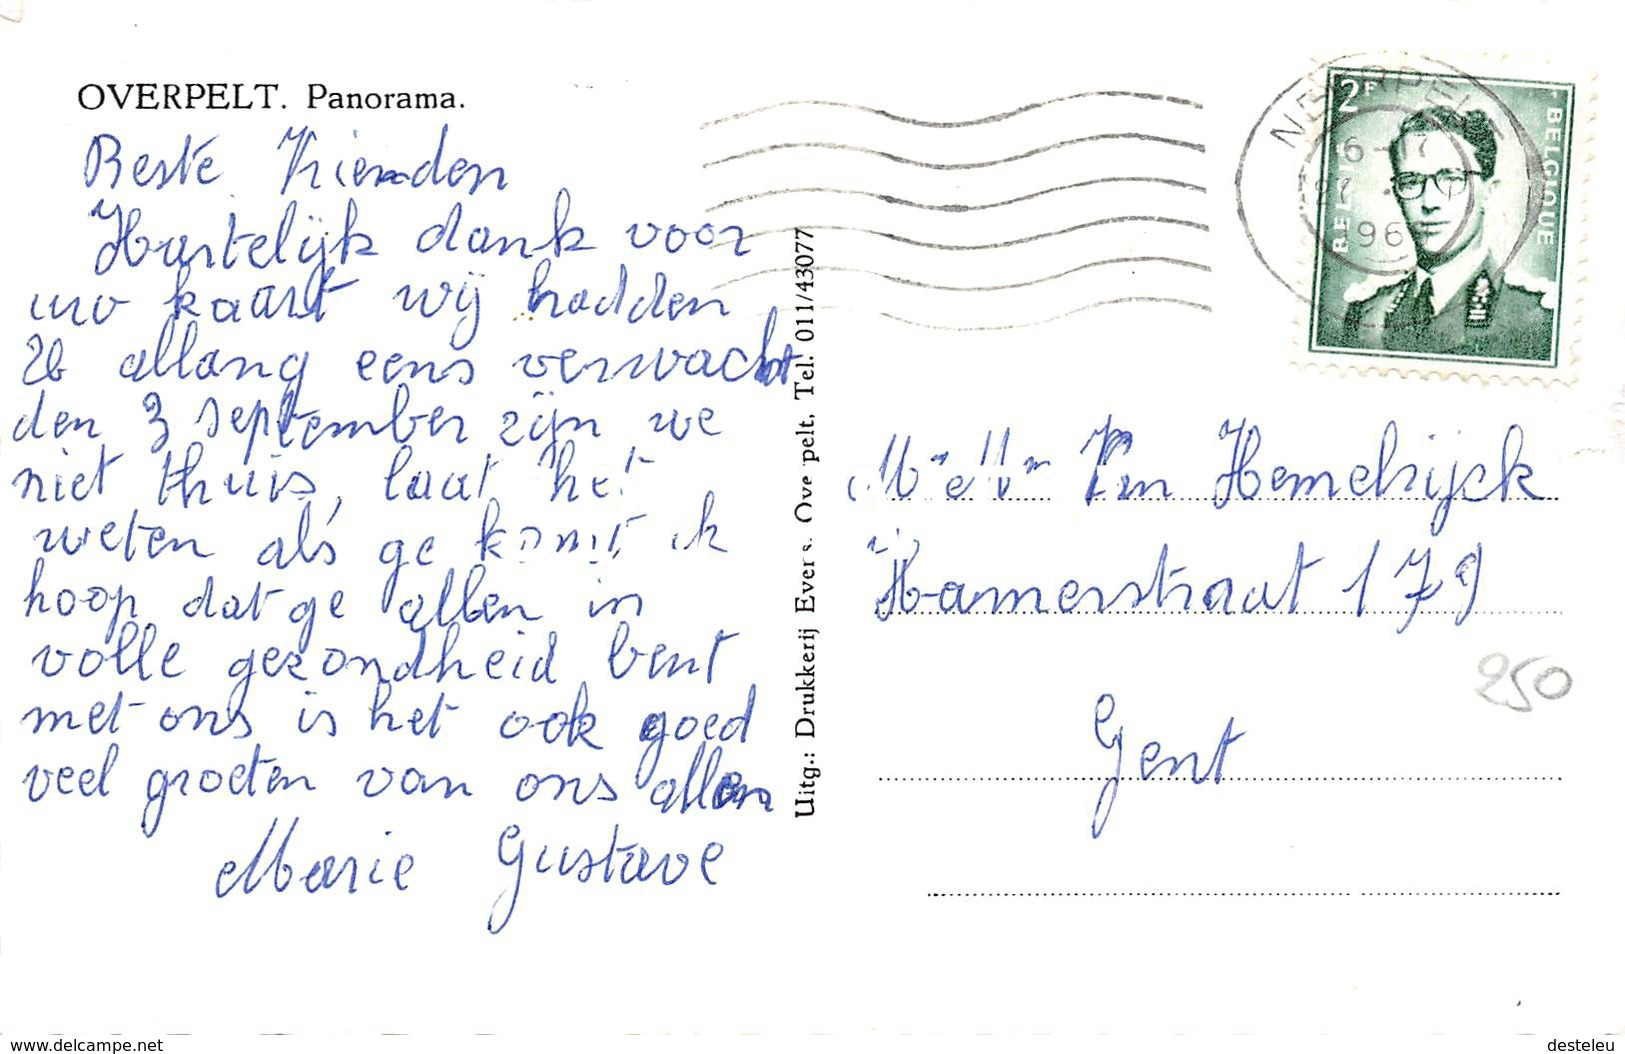 OVERPELT. Panorama.
Beste Vrienden
Hartelijk dank voor
uw kaart wij hadden
U allang eens verwacht
den 3 september zijn we
niet thuis, laat het
weten als ge komt ik
hoop dat ge allen in
volle gezondheid bent
met ons is het ook goed
veel groeten van ons allen
Marie Gustave
Uitg.: Drukkerij Evers. Overpelt. Tel. 011/43077
2F
BELGIQUE
NEERPELT
6-17
196
Van Hemelrijck
Hamerstraat 179
250
Gent
www.delcampe.net
desteleu